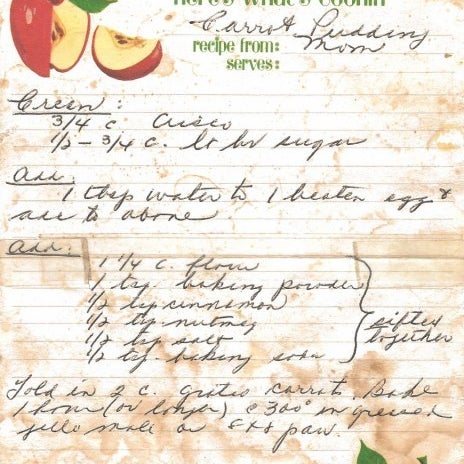 here's what's cookin'
Carrot Pudding
recipe from: Mom
serves:
Cream:
3/4 c Crisco
1/2 - 3/4 c. lt br sugar
Add:
1 tbsp water to 1 beaten egg &
add to above
Add:
1 1/4 c. flour
1 tsp. baking powder
1/2 tsp cinnamon
1/2 tsp nutmeg
1/2 tsp salt
1/2 tsp. baking soda
sifted
together
Fold in 2 c. grated carrots. Bake
1 hour (or longer) @ 300° in greased
jello mold or 8x8 pan